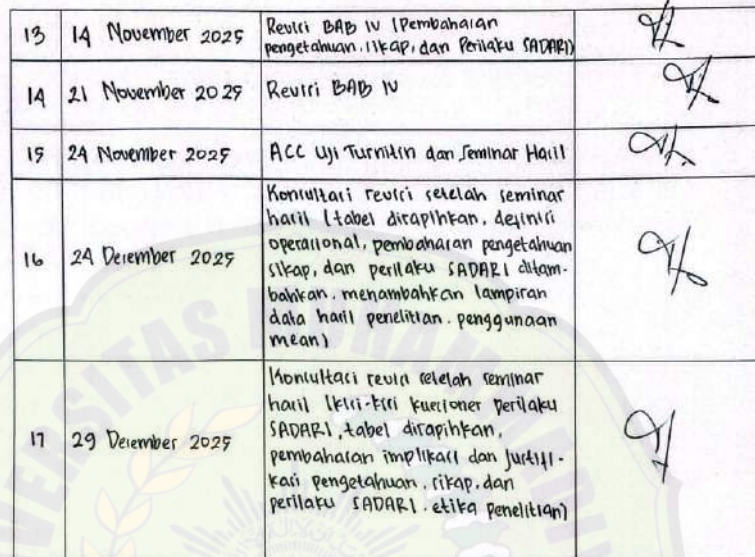 13 14 November 2025 Revisi BAB IV (Pembahasan
pengetahuan, sikap, dan Perilaku SADARI)
14 21 November 2025 Revisi BAB IV
15 24 November 2025 ACC Uji Turnitin dan Seminar Hasil
16 24 Desember 2025 Konsultasi revisi setelah seminar
hasil (tabel dirapihkan, definisi
operasional, pembahasan pengetahuan
sikap, dan perilaku SADARI ditam-
bahkan, menambahkan lampiran
data hasil penelitian, penggunaan
mean)
17 29 Desember 2025 Konsultasi revisi setelah seminar
hasil (kisi-kisi kuesioner perilaku
SADARI, tabel dirapihkan,
pembahasan implikasi dan justifi-
kasi pengetahuan, sikap, dan
perilaku SADARI, etika penelitian)